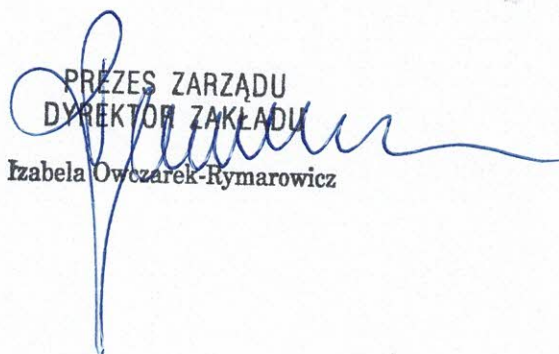 PREZES ZARZĄDU
DYREKTOR ZAKŁADU
Izabela Owczarek-Rymarowicz